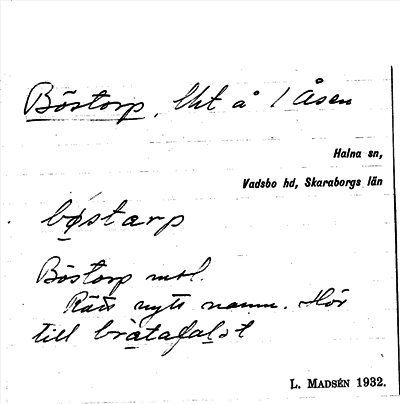 Böstorp, Uht å 1 Åsen
Halna sn,
Vadsbo hd, Skaraborgs län
bøstarp
Böstorp mtl.
Rätt nytt namn. Hör
till
L. MADSÉN 1932.